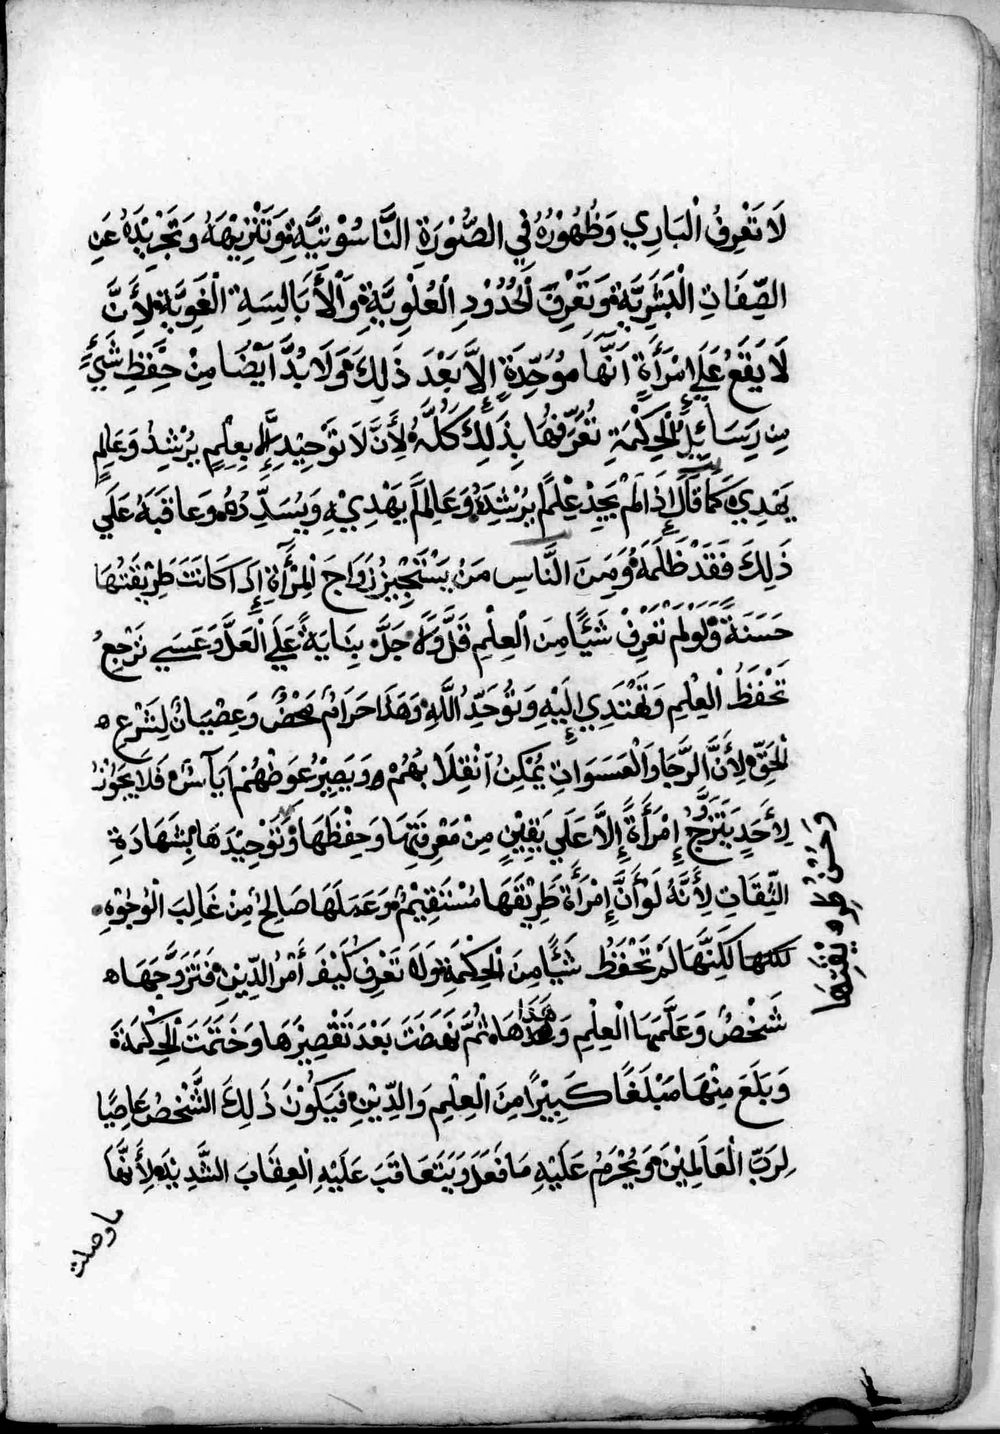 لَا تَعْرِفُ الْبَارِي وَظُهُوْرُهُ فِي الصُّوْرَةِ النَّاسُوْتِيَّةِ وَتَنْزِيْهَهُ وَتَجْرِيْدَهُ عَنِ
الصِّفَاتِ الْبَشَرِيَّةِ وَتَعْرِفَ الْحُدُوْدِ الْعُلْوِيَّةِ وَالْأَبَالِسَةِ الْغَوِيَّةِ لِأَنَّ
لَا يَقَعُ عَلَى امْرَأَةٍ اَنَّهَا مُوَحِّدَةٍ إِلَّا بَعْدَ ذَلِكَ وَلَا بُدَّ اَيْضًا مِنْ حِفْظِ شَيْءٍ
مِن رِسَائِلِ الْحِكْمَةِ تُعَرِّفُهَا بِذَلِكَ كُلَّهُ لِأَنَّ لَا تَوْحِيْدِ إِلَّا بِعِلْمٍ يُرْشِدْ وَعَالِمٍ
يَهْدِي كَمَا قَالَ إِذَا لَمْ يَجِدْ عِلْمًا يُرْشِدَهُ وَعَالِمًا يَهْدِيْهِ وَيُسَدِّدُهُ وَعَاقَبَهُ عَلَى
ذَلِكَ فَقَدْ ظَلَمَهُ وَمِنَ النَّاسِ مَنْ يَسْتَجِيْزُ زَوَاجَ الْمِرْأَةِ إِذَا كَانَتَ طَرِيْقَتُهَا
حَسَنَةً وَلَوْ لَمْ تَعْرِفْ شَيْئًا مِنَ الْعِلْمِ قَلَّ وَلَا جَلَّ بِنَايَةً عَلَى الْعَلَّ وَعَسَى تَرْجِعُ
تَحْفَظُ الْعِلْمِ وَتَهْتَدِي إِلَيْهِ وَتُوَحِّدُ اللَّهِ وَهَذَا حَرَامٌ مَحْضٌ وَعِصْيَانٌ لِشَرْعِ
الْحَقِّ لِأَنَّ الرِّجَا وَالْعَسَوَاتِ يُمْكِنُ انْقِلَابُهُمْ وَيَصِيْرُ عِوَظُهُمْ اَيَآسٌ فَلَا يَجُوْزُ
لِأَحَدٍ يَتَزَوَّجُ إِمْرَأَةً إِلَّا عَلَى يَقِيْنٍ مِنْ مَعْرِفَتِهَا وَحِفْظَهَا وَتَوْحِيْدَهَا بِشَهَادَةِ
الثِّقَاتِ لِأَنَّهُ لَوْ أَنَّ إِمْرَأَةً طَرِيْقَهَا مُسْتَقِيْمٌ وَعَمَلَهَا صَالِحٌ مِنْ غَالِبَ الْوُجُوْهِ
لكنها لَكِنَّهَا لَمْ تَحْفَظُ شَيْئًا مِنَ الْحِكْمَةِ وَلَا تَعْرِف كَيْفَ أَمْرُ الدِّيْنِ فَتَزَوَّجَهَا
شَخْصٌ وَعَلَّمَهَا الْعِلْمِ وَهَذَاهَا ثُمَّ نَهَضَتَ بَعْدَ تَقْصِيْرَهَا وَخَتَمَتَ الْحِكْمَةَ
وَبَلَغَ مِنْهَا مَبْلَغًا كَبِيْرًا مِنَ الْعِلْمِ وَالدِّيْنِ فَيَكُوْنَ ذَلِكَ الشَّخْصُ عَاصِيًا
لِرَبِّ الْعَالَمِيْنَ وَيُحْرَمُ عَلَيْهِ مَا فَعَلَ وَيَتَعَاقَبَ عَلَيْهِ الْعِقَابَ الشَّدِيْدِ لِأَنَّهَا
ما وصلت